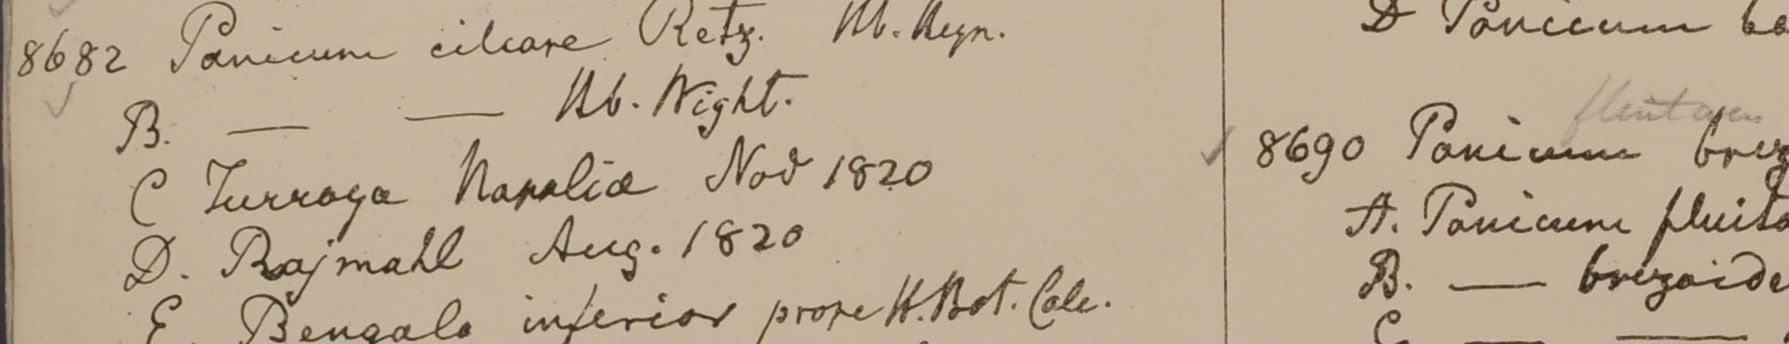 8682 Panicum ciliare Retz. Hb. Heyn.
B. — — Hb. Wight.
C Turraya Napaliæ Nov 1820
D. Rajmahl Aug. 1820
E Bengala inferior prope H. Bot. Calc.
D Panicum
fluitans
8690 Panicum briz
A. Panicum fluita
B. — brizoide
C — —